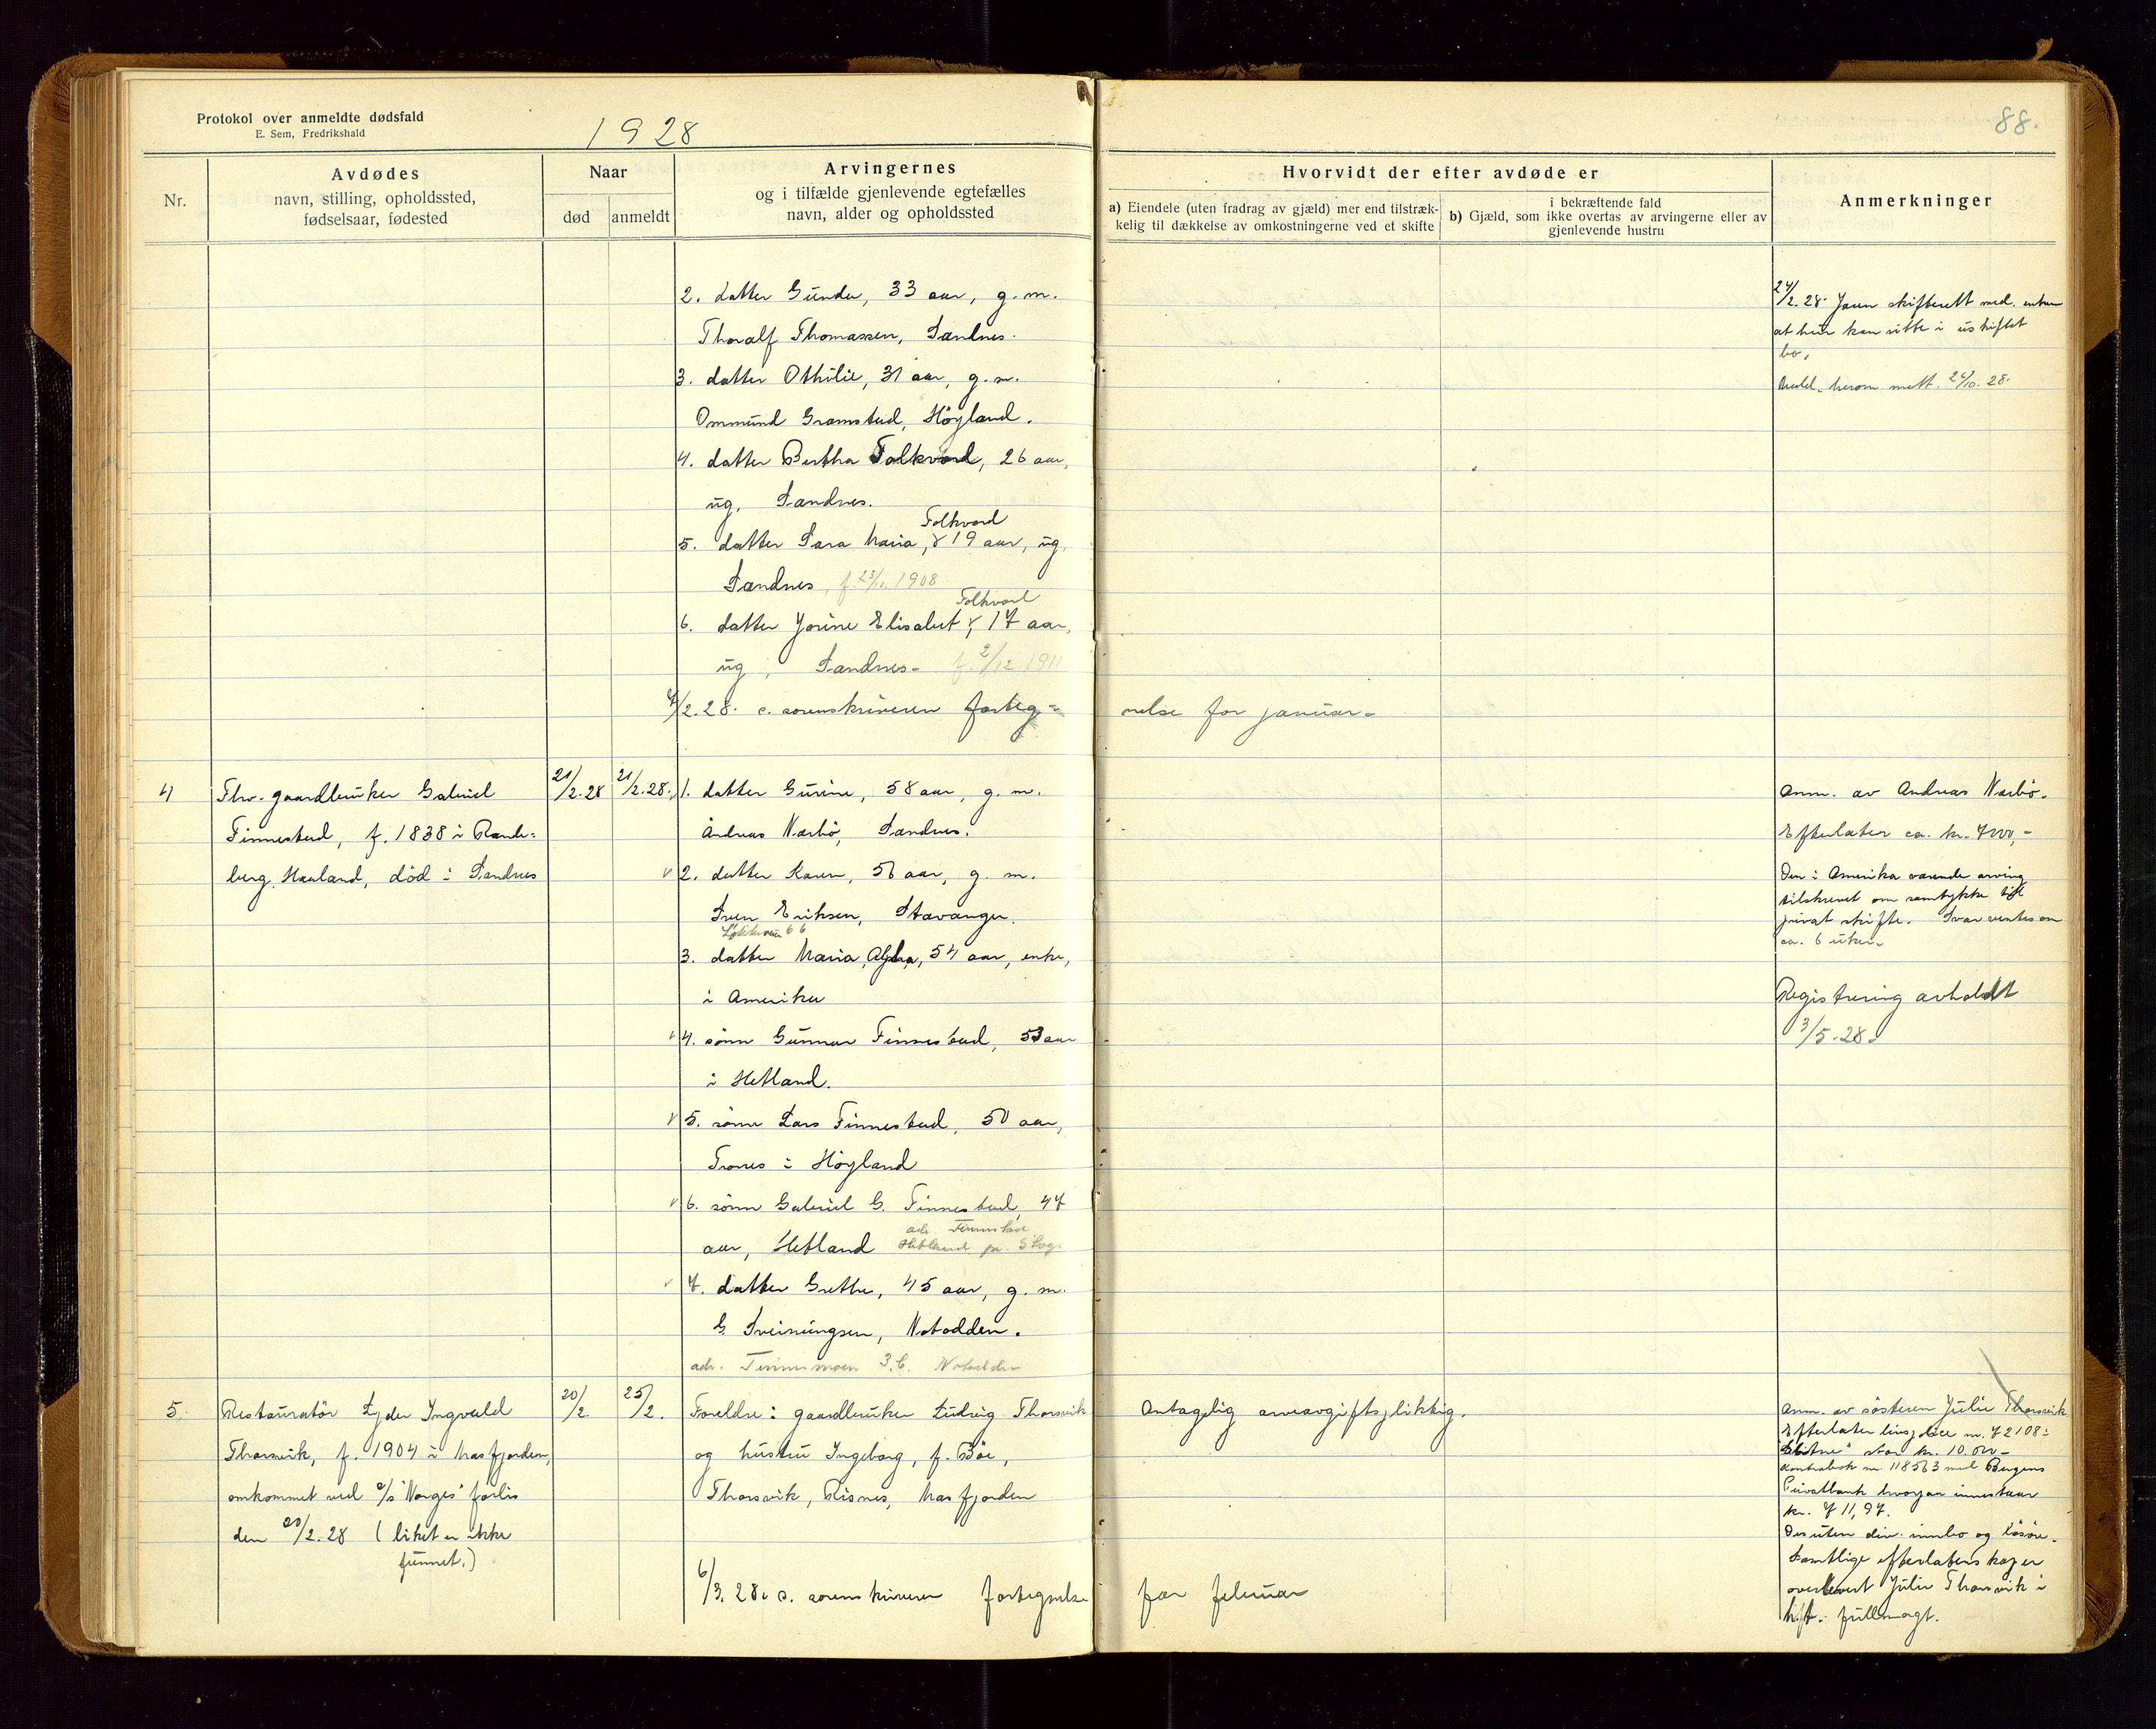 Protokol over anmeldte dødsfald
E. Sem, Fredrikshald
1928
88.
Nr.
Avdødes
navn, stilling, opholdssted,
fødselsaar, fødested
Naar
død
anmeldt
Arvingernes
og i tilfælde gjenlevende egtefælles
navn, alder og opholdssted
Hvorvidt der efter avdøde er
a) Eiendele (uten fradrag av gjæld) mer end tilstræk-
kelig til dækkelse av omkostningerne ved et skifte
i bekræftende fald
b) Gjæld, som ikke overtas av arvingerne eller av
gjenlevende hustru
Anmerkninger
2. datter Gunda, 33 aar, g. m.
Thoralf Thomassen, Sandnes.
3. datter Othilie, 31 aar, g. m.
Ommund Gramstad, Höyland.
4. datter Bertha Folkvord, 26 aar,
ug, Sandnes.
Folkvord
5. datter Sara Maria, 19 aar, ug.
Sandnes, f. 23/10. 1908
Folkvord
6. datter Jorine Elisabet, 17 aar,
ug, Sandnes- f. 2/12 1911
4/2.28. s. sorenskriveren forteg=
nelse for januar-
24/2.28. Jæren skifterett med. enken
at hun kan sitte i uskiftet
bo,
Meld. herom mott. 24/10. 28.
4
Fhv. gaardbruker Gabriel
Finnestad, f. 1838 i Rande=
berg, Hauland, död i Sandnes
21/2.28
21/2.28.
1. datter Gurine, 58 aar, g. m.
Andreas Narbö, Sandnes.
2. datter Karen, 56 aar, g. m.
Sven Eriksen, Stavanger.
66
3. datter Maria, 54 aar, enke,
i Amerika
4. sönn Gunnar Finnestad, 53 aar
i Hetland.
5. sönn Lars Finnestad, 50 aar,
Trones i Höyland
6. sönn Gabriel G. Finnestad, 47
aar, Hetland
adr. Finnestad
Hetland pr. Stvgr
7. datter Grethe, 45 aar, g. m.
G. Sveinungsen, Notodden.
adr. Tinnesmoen 3. b. Notodden
Anm. av Andreas Narbö.
Efterlater ca. kr. 7000,-
Den i Amerika værende arving
tilskrevet om samtykke til
privat skifte. Svar ventes om
ca. 6 uker.
Registrering avholdt
3/5-28.
5.
Restauratör Lyder Ingvald
Thorsvik, f. 1904 i Masfjorden,
omkommet ved s/s "Norges" forlis
den 20/2.28 (liket er ikke
funnet.)
20/2.
25/2.
Foreldre: gaardbruker Ludvig Thorsvik
og hustru Ingeborg, f. Böe,
Thorsvik, Risnes, Masfjorden
Antagelig arveavgiftspliktig.
6/3. 28. s. sorenskriveren fortegnelse
for februar
Anm. av sösteren Julie Thorsvik
Efterlater livspolice nr. 72108 i
stor kr. 10.000-
Kontrabok nr. 118563 med Bergens
Privatbank hvorpaa innestaar
kr. 711,97.
Desuten div. innbo og lösöre.
Samtlige efterlatenskaper
overlevert Julie Thorsvik i
hft. fullmagt.